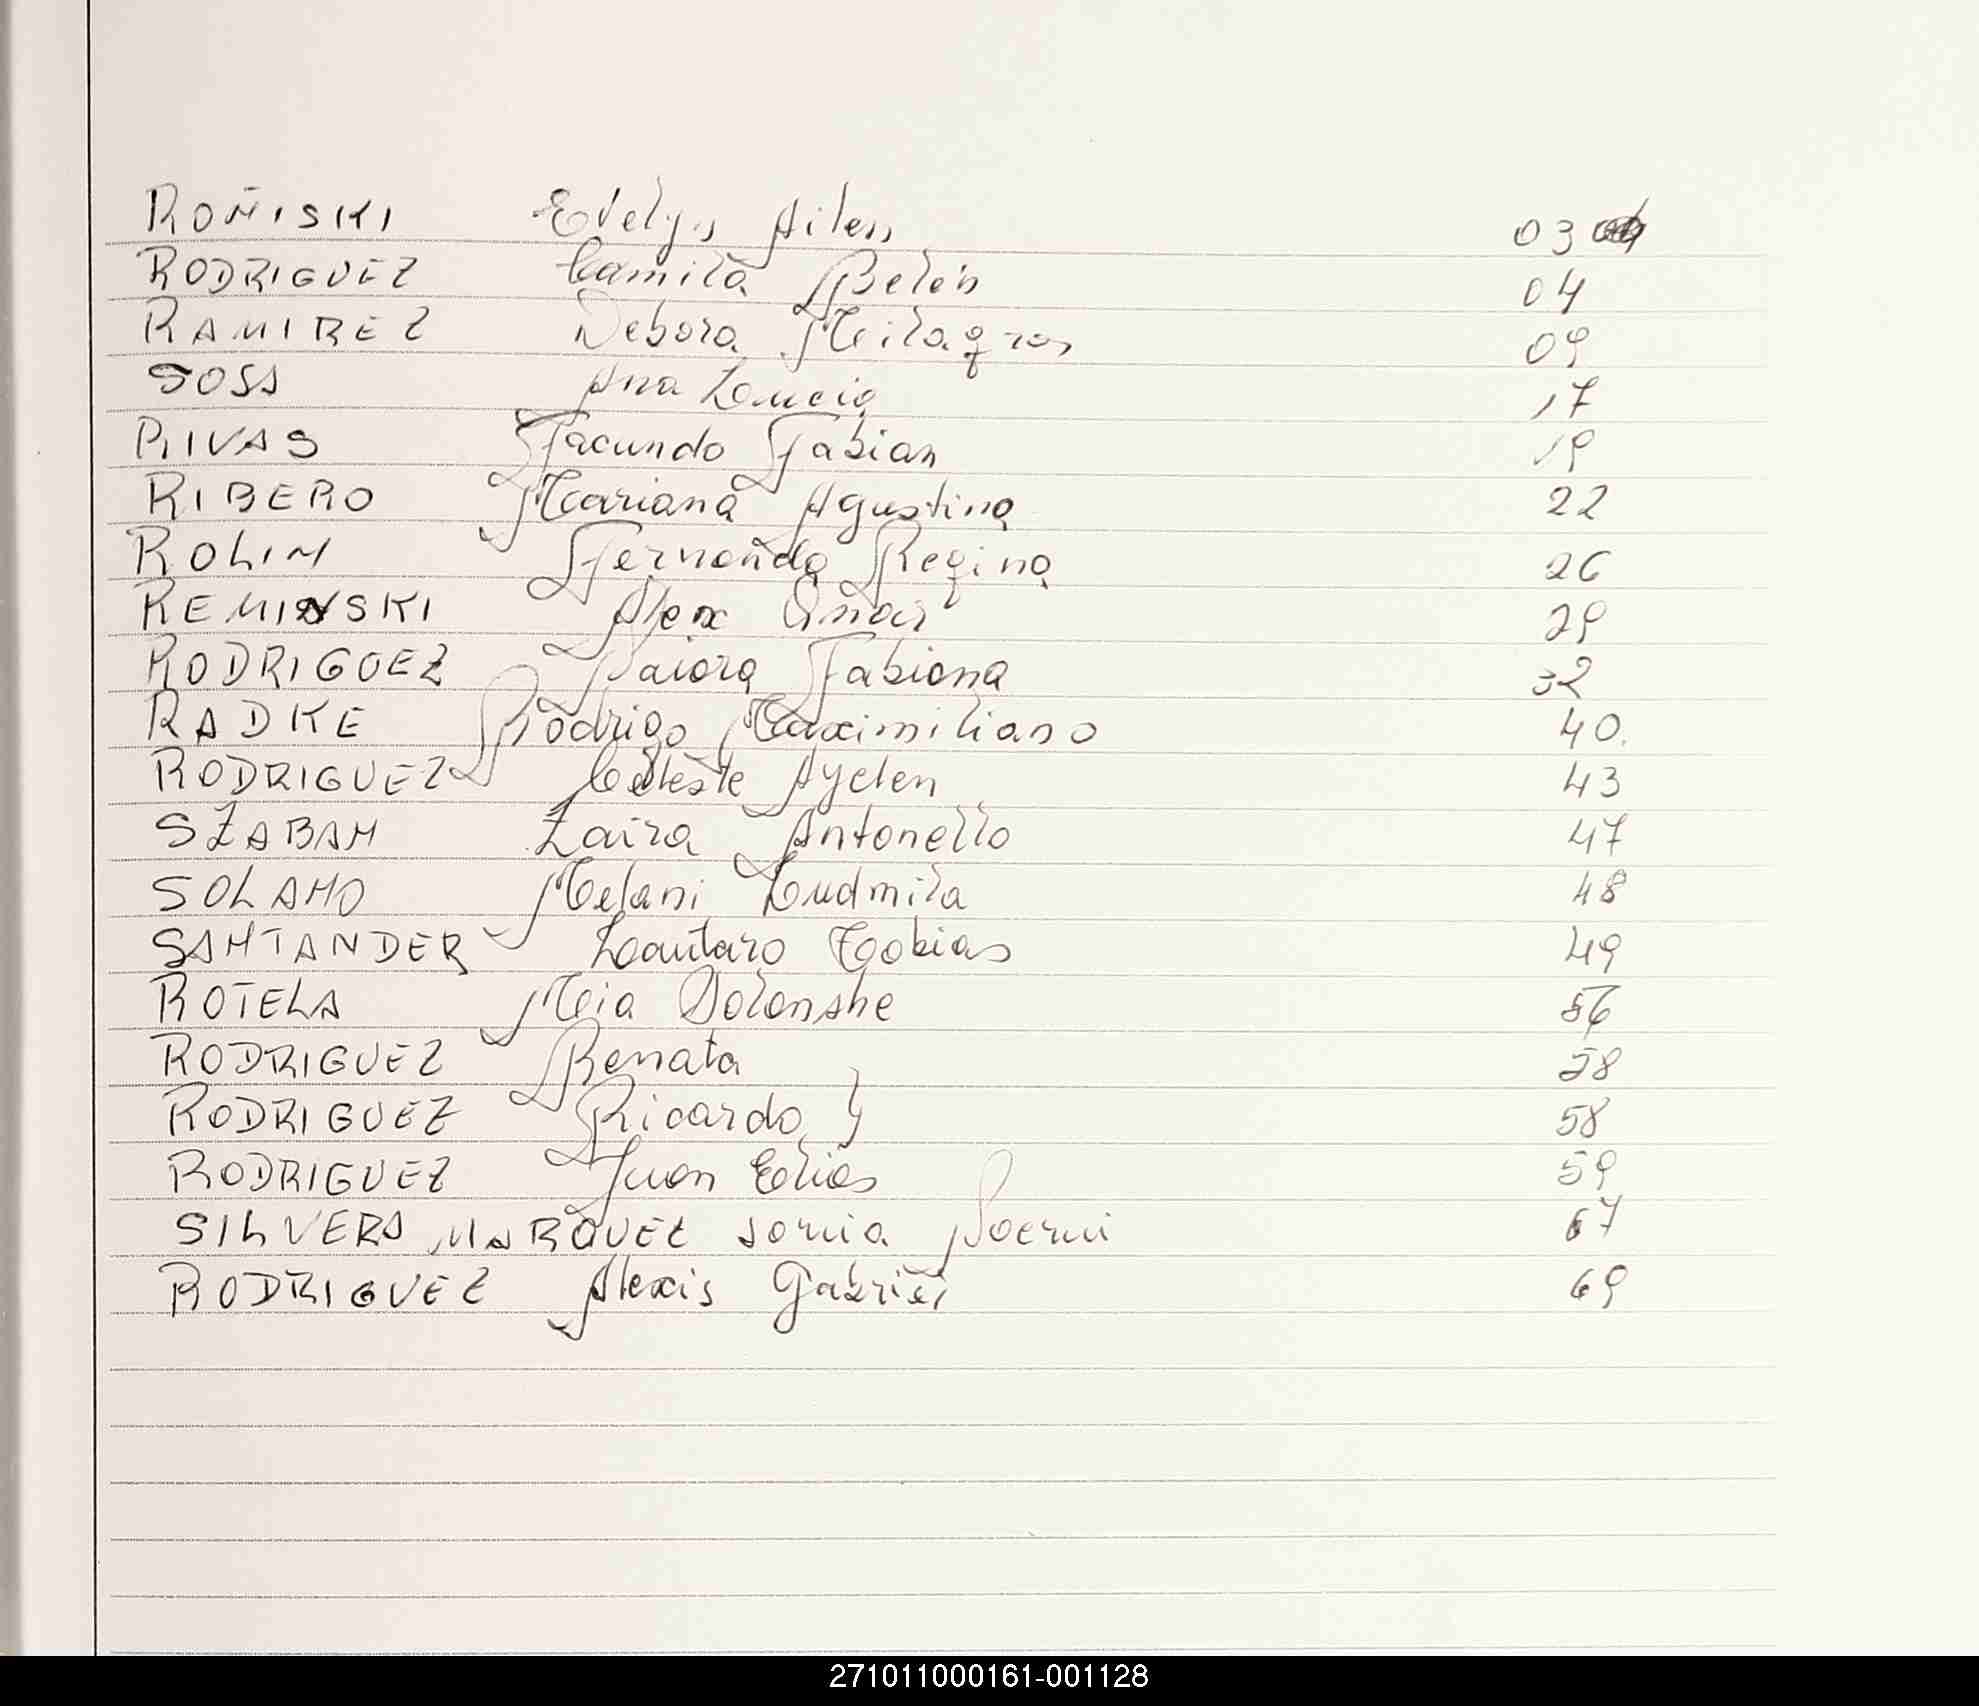 ROÑISKI Evelyn Ailen 03
RODRIGUEZ Camila Belén 04
RAMIREZ Debora Milagros 09
SOSA Ana Lucia 17
RIVAS Facundo Fabian 19
RIBERO Mariana Agustina 22
ROLIM Fernanda Regina 26
REMINSKI Alex 29
RODRIGUEZ Naiara Fabiana 32
RADKE Rodrigo Maximiliano 40.
RODRIGUEZ Celeste Ayelen 43
SZABAM Zaira Antonella 47
SOLAMO Melani Ludmila 48
SAMTANDER Lautaro Tobias 49
ROTELA Mia 56
RODRIGUEZ Renata 58
RODRIGUEZ Ricardo } 58
RODRIGUEZ Juan Elias 59
SILVERA MARQUEZ Sonia Noemi 67
RODRIGUEZ Alexis Gabriel 69
271011000161-001128